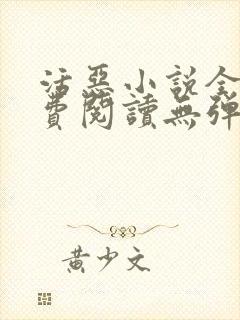 活惡小說全
費閱讀無彈
黃少文